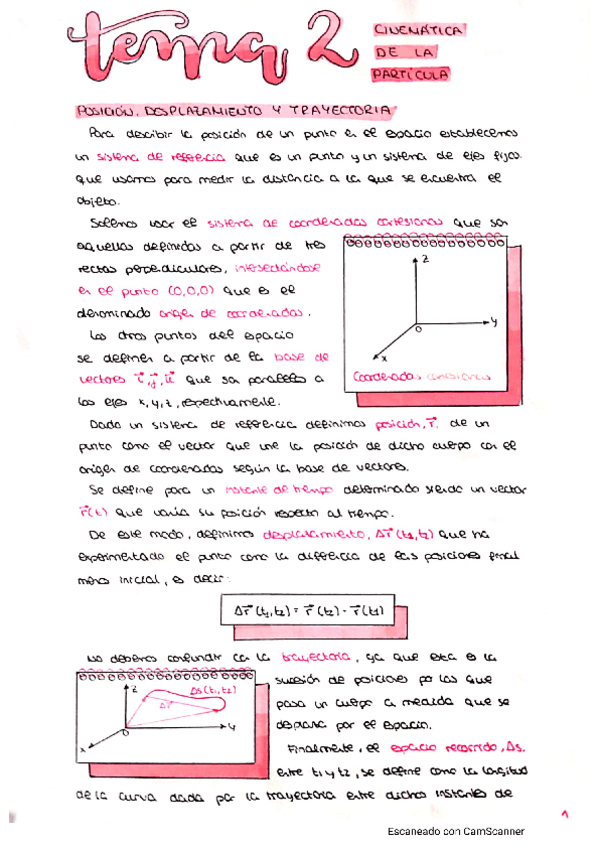 tema 2
CINEMÁTICA
DE LA
PARTÍCULA
POSICIÓN, DESPLAZAMIENTO Y TRAYECTORIA
Para describir la posición de un punto en el espacio establecemos
un sistema de referencia que es un punto y un sistema de ejes fijos.
que usamos para medir la distancia a la que se encuentra el
objeto.
Solemos usar el sistema de coordenadas cartesianas que son
aquellas definidas a partir de tres
rectas perpendiculares, intersectándose
en el punto (0,0,0) que es el
denominado origen de coordenadas.
Los otros puntos del espacio
se definen a partir de la base de
vectores i⃗, j⃗, k⃗ que son paralelos a
los ejes x, y, z, respectivamente.
z
y
x
O
Coordenadas cartesianas
Dado un sistema de referencia definimos posición, r⃗, de un
punto como el vector que une la posición de dicho cuerpo con el
origen de coordenadas según la base de vectores.
Se define para un instante de tiempo determinado siendo un vector
r⃗(t) que varía su posición respecto al tiempo.
De este modo, definimos desplazamiento, Δr⃗ (t₁,t₂) que ha
experimentado el punto como la diferencia de las posiciones final
menos inicial, es decir:
Δr⃗ (t₁,t₂) = r⃗ (t₂) - r⃗ (t₁)
No debemos confundir con la trayectoria, ya que esta es la
sucesión de posiciones por las que
pasa un cuerpo a medida que se
desplaza por el espacio.
Finalmente, el espacio recorrido, Δs,
entre t₁ y t₂, se define como la longitud
z
Δs(t₁,t₂)
Δr⃗
y
x
O
de la curva dada por la trayectoria entre dichos instantes de
1
Escaneado con CamScanner